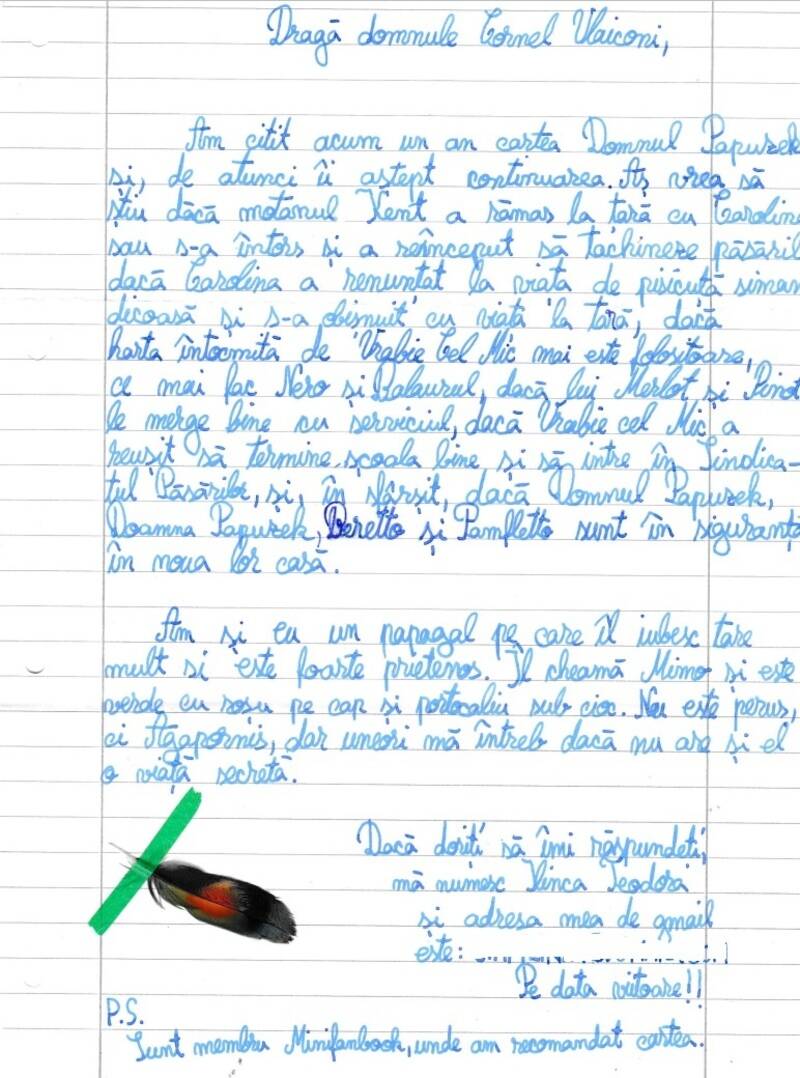 Dragă domnule Cornel Vlaiconi,
Am citit acum un an cartea Domnul Papuzek
și, de atunci îi aștept continuarea. Aș vrea să
știu dăcă motanul Kent a rămas la țară cu Carolina
sau s-a întors și a reînceput să tachineze păsăril
dacă Carolina a renunțat la viața de pisicuță siman
dicoasă și s-a obișnuit cu viața la țară, dacă
harta întocmită de Vrabie Cel Mic mai este folositoare,
ce mai fac Nero și Balaurul, dacă lui Merlot și Pinot
le merge bine cu serviciul, dacă Vrabie cel Mic a
reușit să termine școala bine și să intre în Sindica-
tul Păsărilor, și, în sfârșit, dacă Domnul Papuzek,
Doamna Papuzek, Beretto și Pamfletto sunt în siguranță
în noua lor casă.
Am și eu un papagal pe care îl iubesc tare
mult și este foarte prietenos. Îl cheamă Mimo și este
verde cu roșu pe cap și portocaliu sub cioc. Nu este peruș,
ci Agapornis, dar uneori mă întreb dacă nu are și el
o viață secretă.
Dacă doriți să îmi răspundeți,
mă numesc Ilinca Teodora
și adresa mea de gmail
este:
Pe data viitoare!!
P.S.
Sunt membru Minifanbook, unde am recomandat cartea.